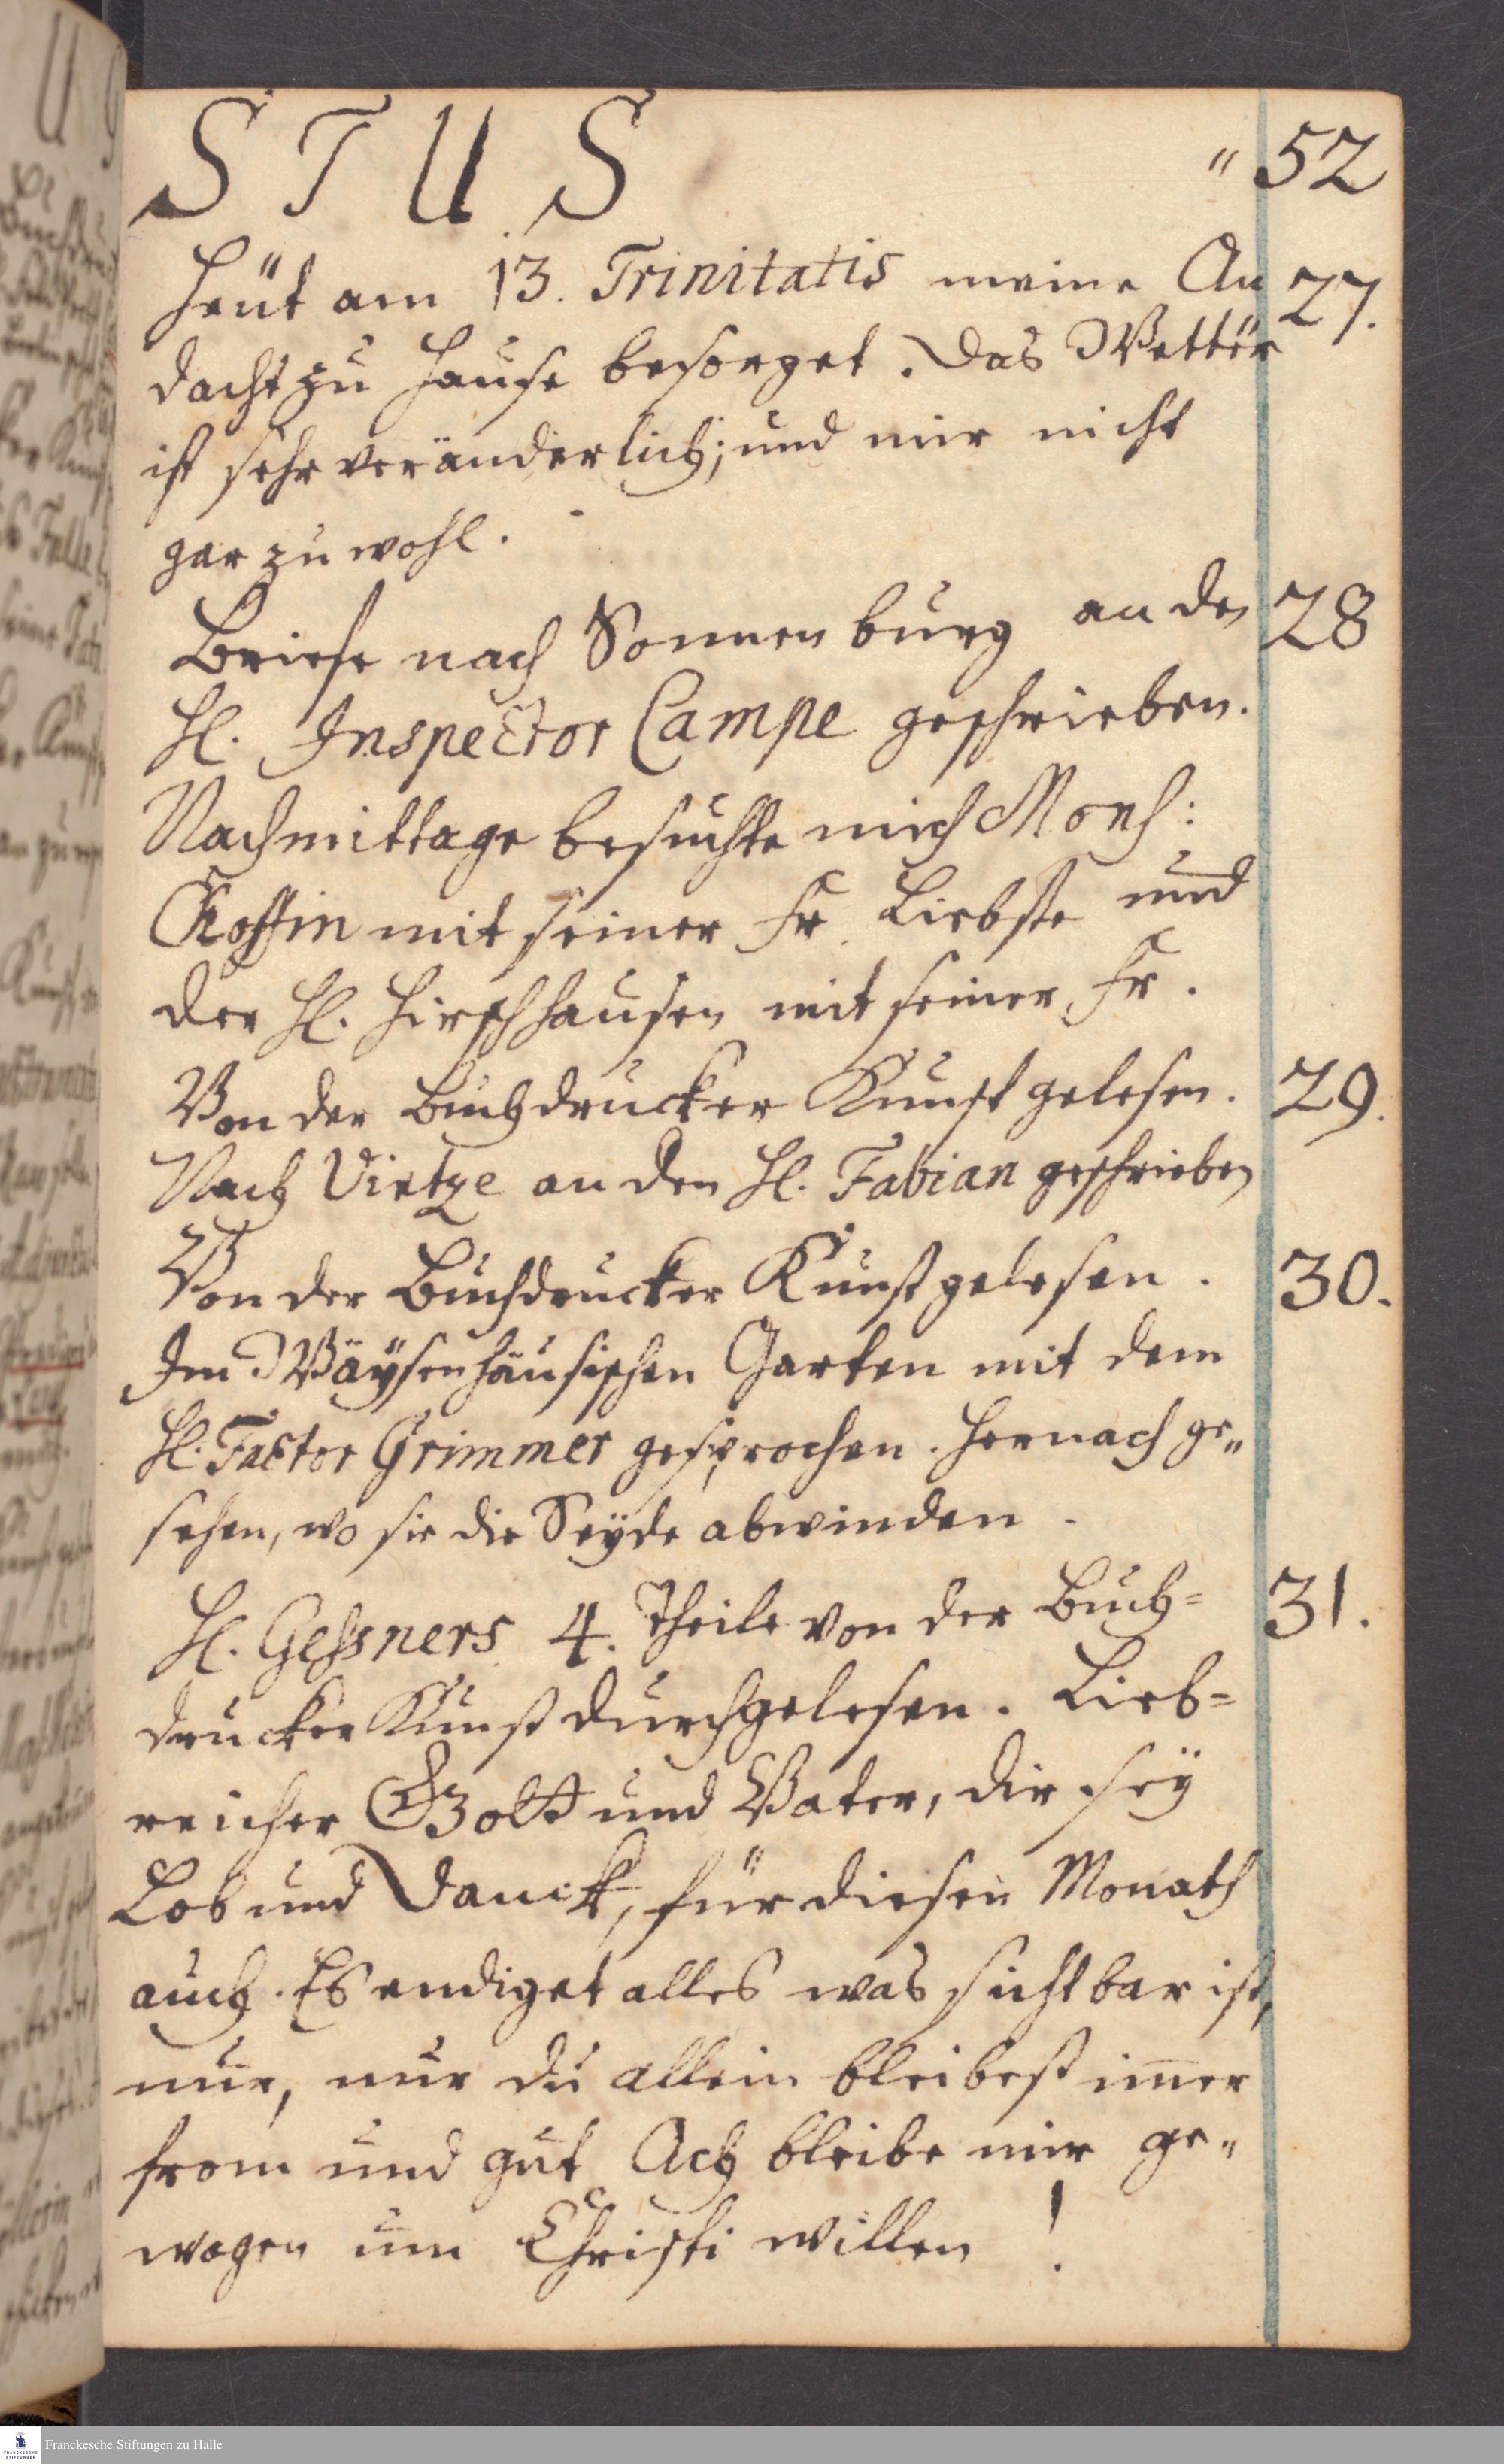 STUS " 52
Heüt am 13. Trinitatis meine An 27.
dacht zu Hause besorget. Das Wetter
ist sehr veränderlich; und mir nicht
gar zu wohl.
Briefe nach Sonnenburg an den 28
H. Inspector Campe geschrieben.
Nachmittage besuchte mich Mons:
Roffin mit seiner Fr. Liebste und
der H. Hirschhausen mit seiner Fr.
Von der Buchdrucker Kunst gelesen. 29.
Nach Vietze an den H. Fabian geschrieben
Von der Buchdrucker Kunst gelesen. 30.
Im Wäysenhäusischen Garten mit dem
H. Factor Grimmer gesprochen. Hernach ge„
sehen, wo sie die Seyde abwinden.
H. Geßners 4. Theile von der Buch= 31.
drucker Kunst durchgelesen. Lieb=
reicher Gott und Vater, dir sey
Lob und Danck, für diesen Monath
auch. Es endiget alles was sichtbar ist,
nur, nur du allein bleibest im̄er
from und gut Ach bleibe mir ge„
wogen um Christi willen!
Franckesche Stiftungen zu Halle